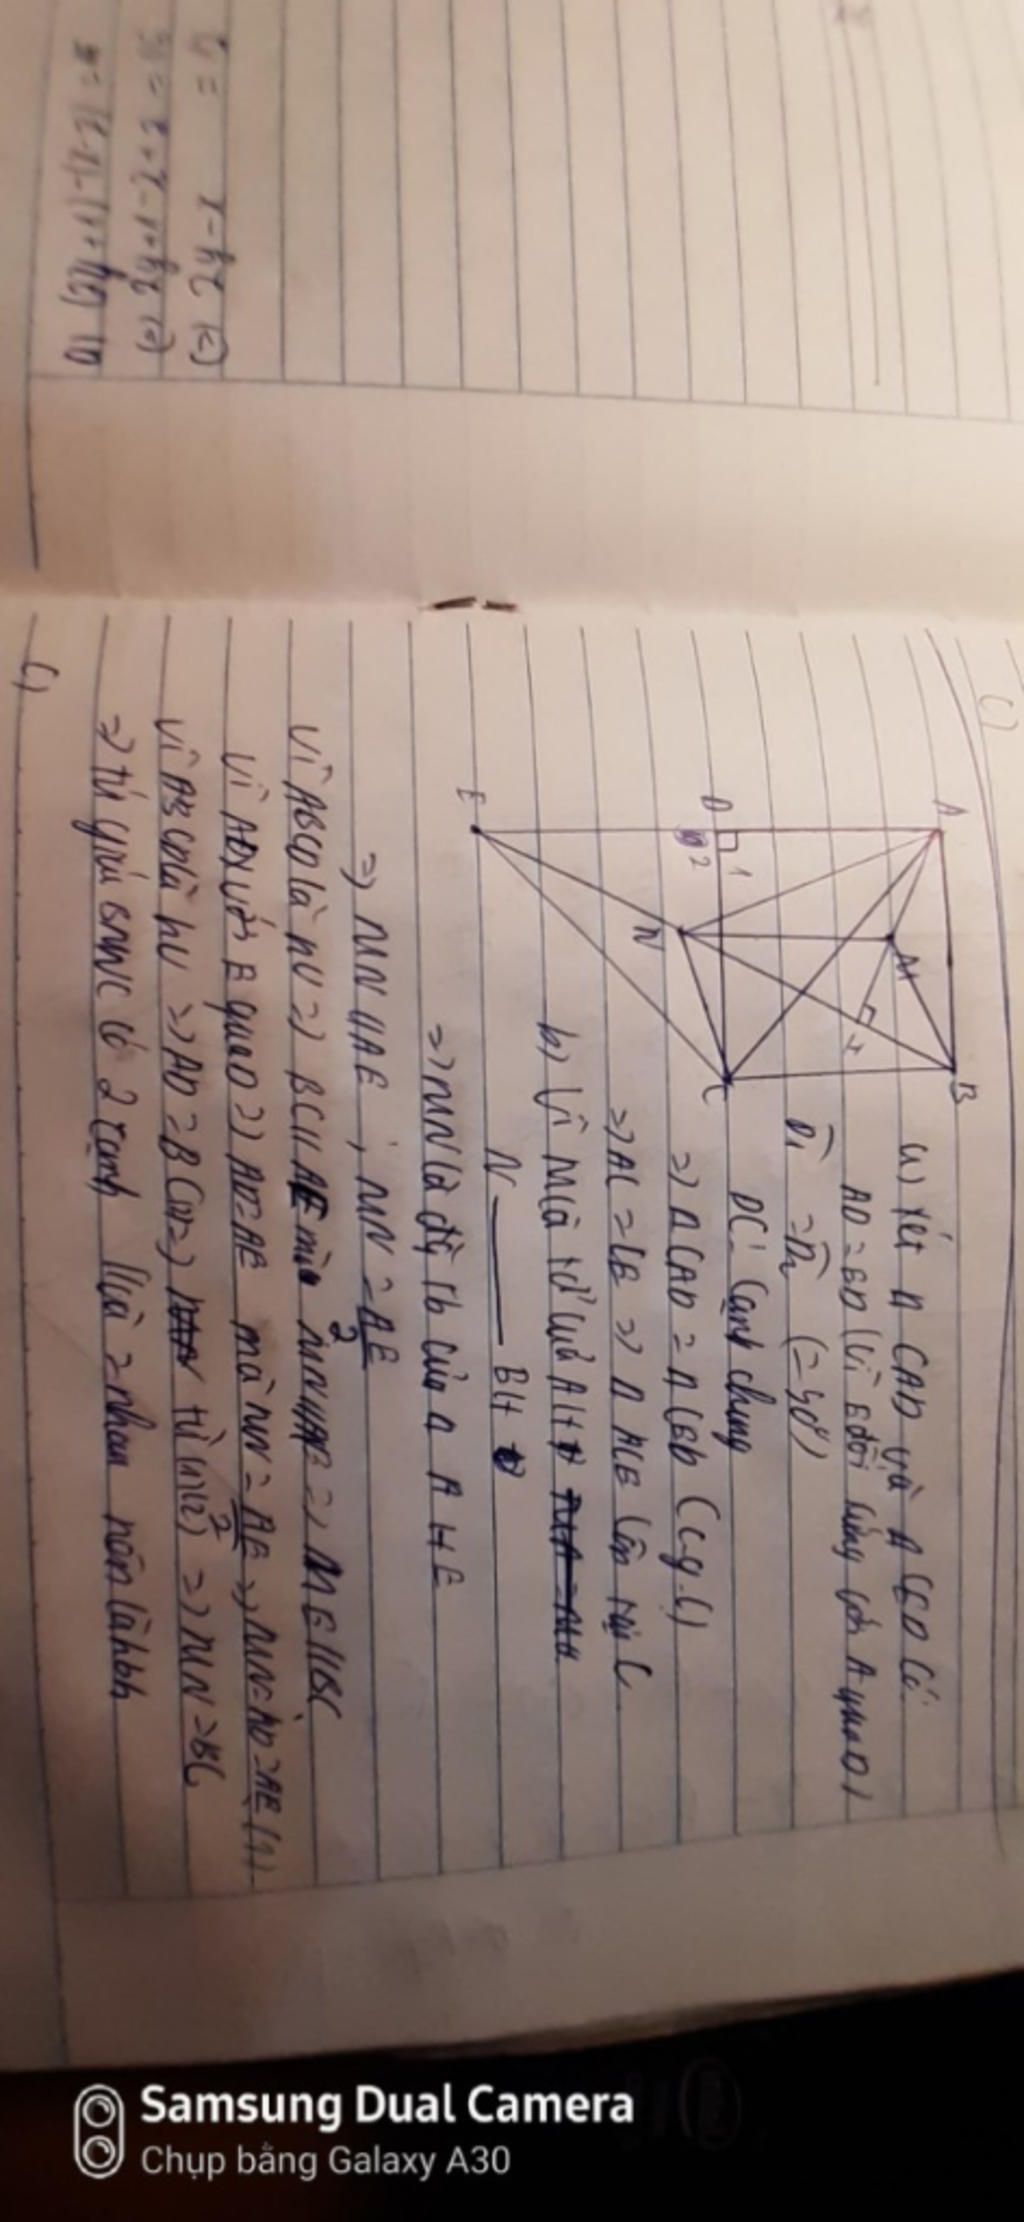 c)
A
B
M
H
D
1
2
N
C
E
a) Xét Δ CAD và Δ CED có:
AD = ED (Vì E đối xứng với A qua D)
D1 = D2 (= 90°)
DC: Cạnh chung
=> Δ CAD = Δ CED (c.g.c)
=> AC = CE => Δ ACE cân tại C
b) Vì M là tđ của AH
N BH
=> MN là đg tb của Δ AHE
=> MN // AE, MN = AE/2
Vì ABCD là hv => BC // AE mà => // BC
Vì A với E qua D => AD = AE mà MN = AE/2 => MN = AD = AE/2 (1)
Vì ABCD là hv => AD = BC => từ (1)(2) => MN = BC
=> tứ giác BMNC có 2 cạnh // và = nhau nên là hbh
c)
(2y+1)-(x-2) = 
(=) 2y+1-x+2 = 
(=) 2y-x =
Samsung Dual Camera
Chụp bằng Galaxy A30